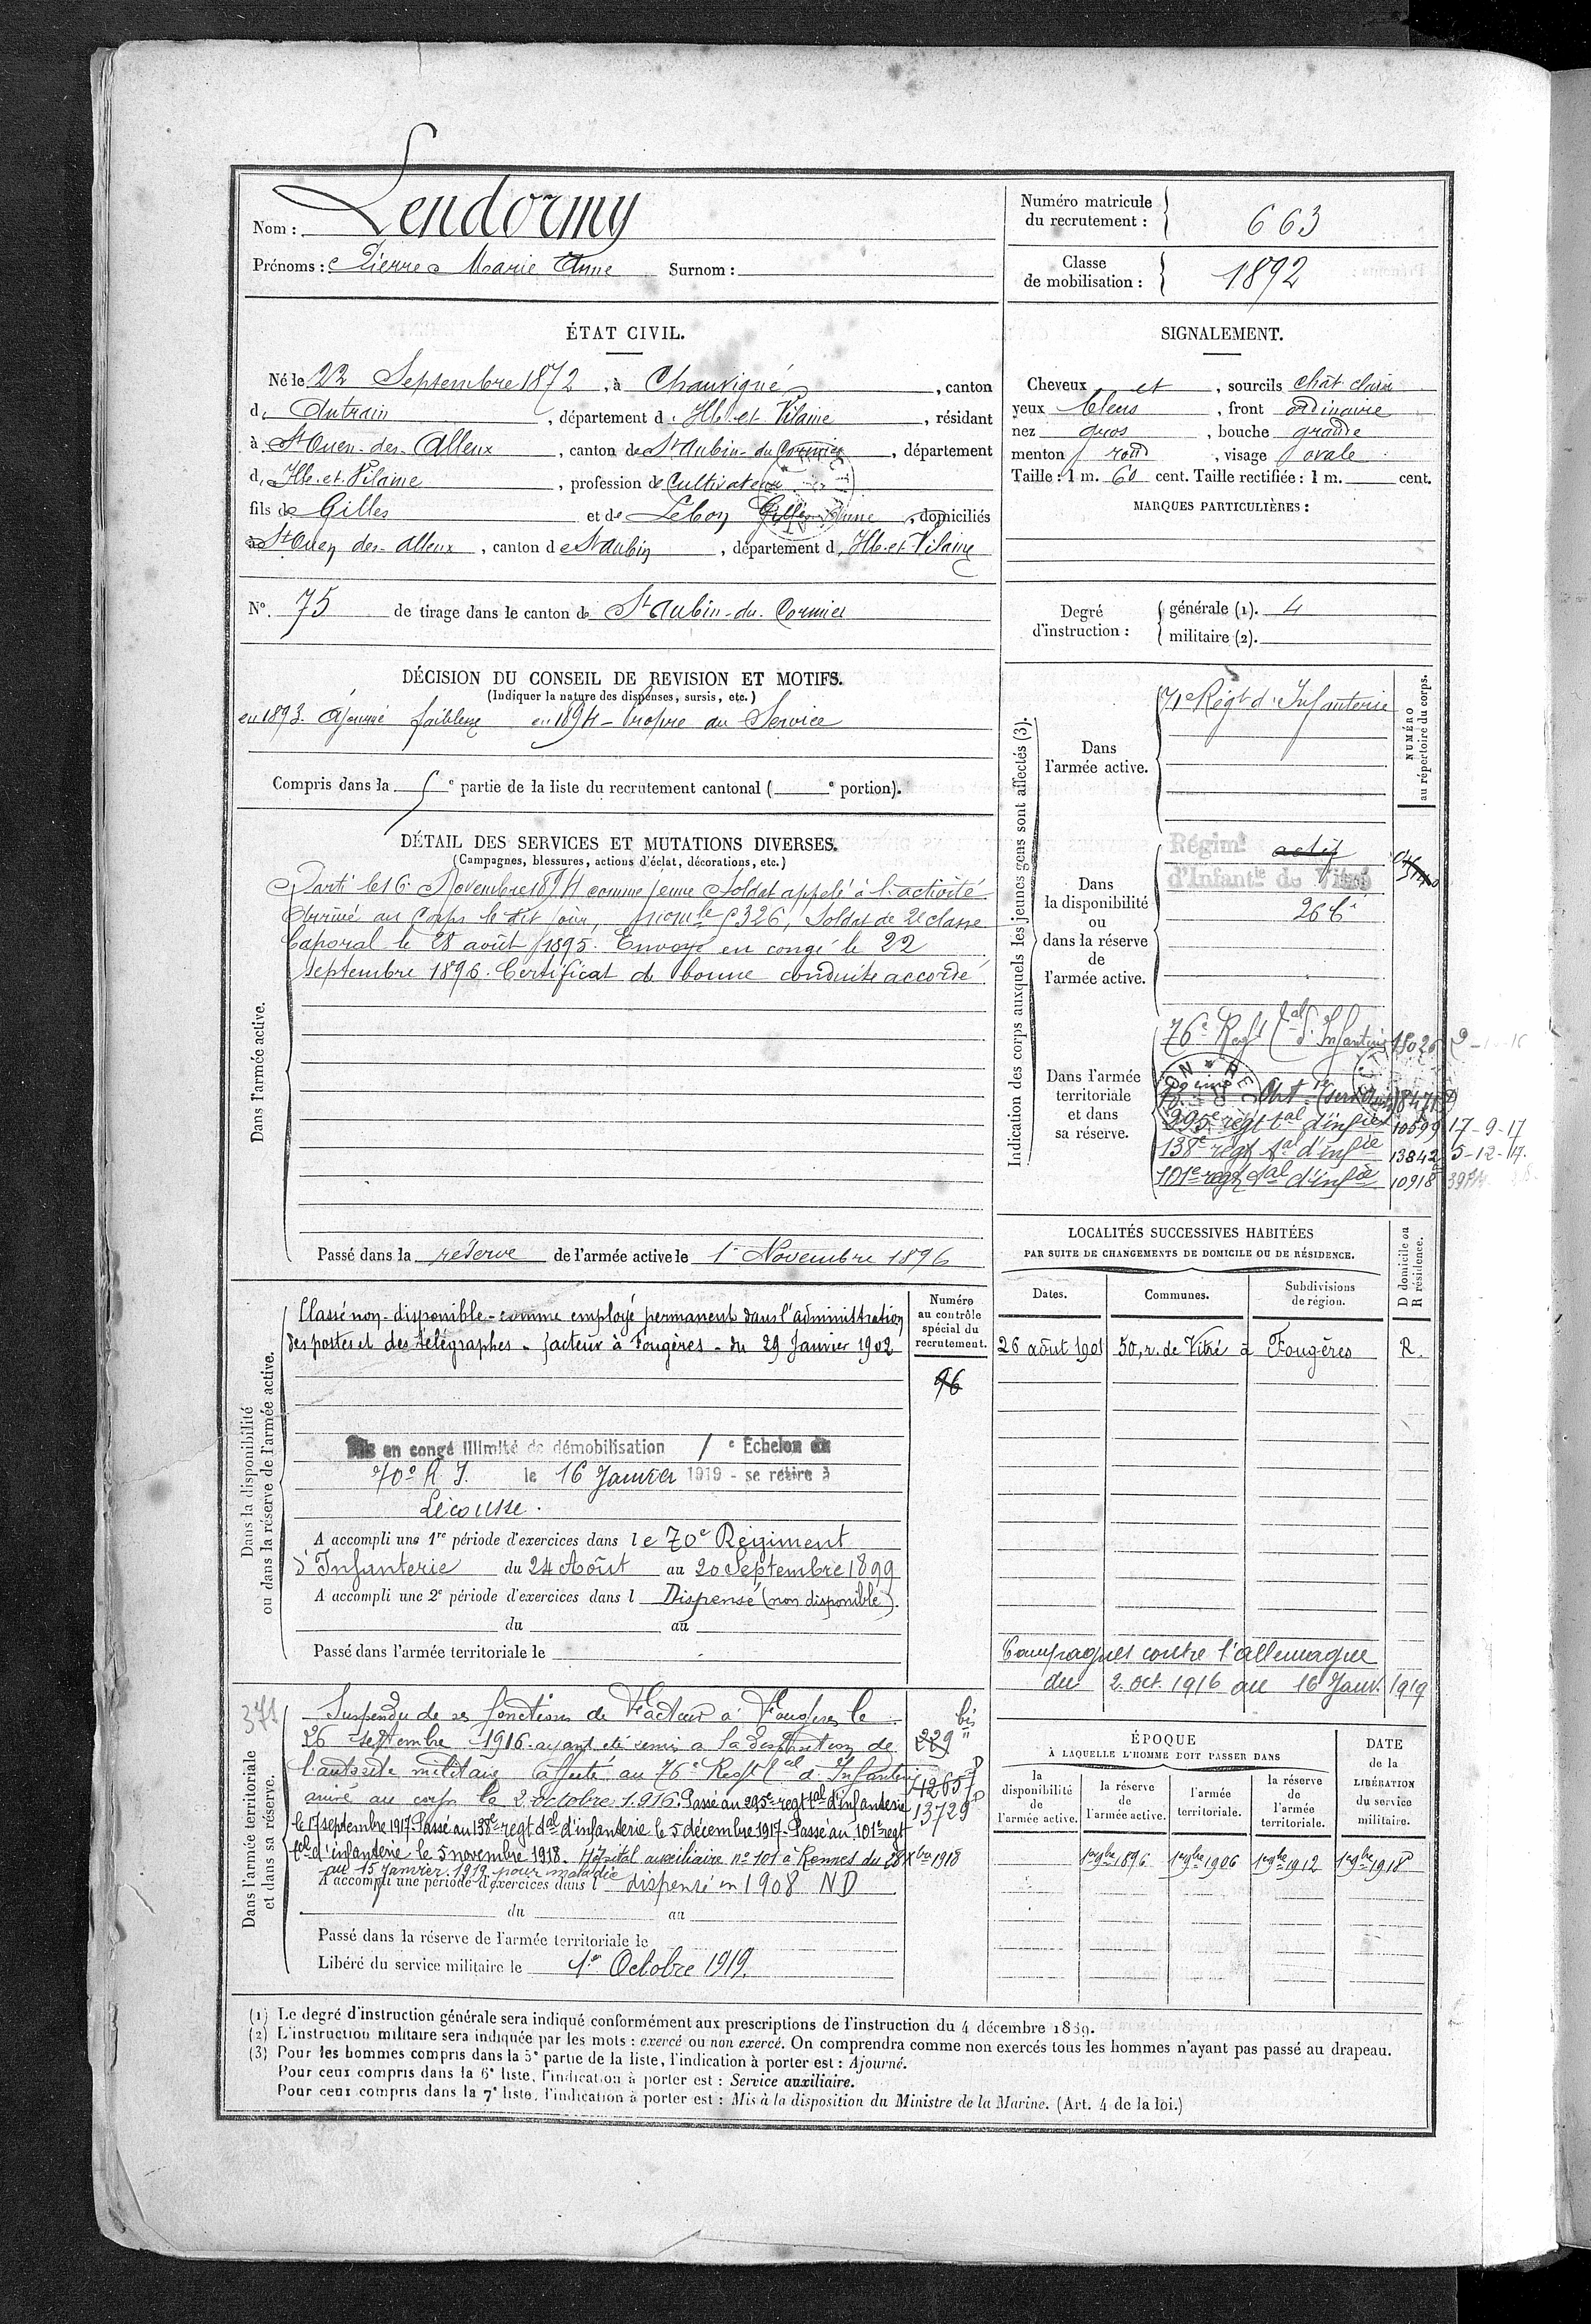 Nom : Lendormy
Prénoms : Pierre Marie Anne Surnom :
Numéro matricule
du recrutement : 663
Classe
de mobilisation : 1892
ÉTAT CIVIL.
Né le 22 Septembre 1872, à Chauvigné, canton
d'Antrain, département d'Ille-et-Vilaine, résidant
à St Ouen-des-Alleux, canton de St Aubin-du-Cormier, département
d'Ille-et-Vilaine, profession de Cultivateur
fils de Gilles et de Lebon Anne, domiciliés
à St Ouen des-Alleux, canton de St Aubin, département d'Ille-et-Vilaine
N° 75 de tirage dans le canton de St Aubin-du-Cormier
SIGNALEMENT.
Cheveux et, sourcils chât. clair
yeux bleus, front ordinaire
nez gros, bouche grande
menton rond, visage ovale
Taille : 1 m. 60 cent. Taille rectifiée : 1 m. cent.
MARQUES PARTICULIÈRES :
Degré
d'instruction :
générale (1). 4
militaire (2).
DÉCISION DU CONSEIL DE REVISION ET MOTIFS.
(Indiquer la nature des dispenses, sursis, etc.)
en 1893. Ajourné faiblesse en 1894 - Propre au Service
Compris dans la e partie de la liste du recrutement cantonal ( e portion).
DÉTAIL DES SERVICES ET MUTATIONS DIVERSES.
(Campagnes, blessures, actions d'éclat, décorations, etc.)
Dans l'armée active.
Parti le 16 Novembre 1894 comme jeune Soldat appelé à l'activité.
Arrivé au Corps le dit jour, 5326, Soldat de 2e classe
Caporal le 28 août 1895. Envoyé en congé le 22
septembre 1896. Certificat de bonne conduite accordé.
Passé dans la réserve de l'armée active le 1er Novembre 1896
Indication des corps auxquels les jeunes gens sont affectés (3).
NUMÉRO
au répertoire du corps.
Dans
l'armée active.
71e Régt d'Infanterie
Dans
la disponibilité
ou
dans la réserve
de
l'armée active.
Régimt actif
d'Infantie de Vitré
Dans l'armée
territoriale
et dans
sa réserve.
76e Regt tal d'Infanterie 18026
295e regt tal d'infie 10599 17-9-17
138e regt tal d'infie 13842 5-12-17
101e regt tal d'infie 10918
LOCALITÉS SUCCESSIVES HABITÉES
PAR SUITE DE CHANGEMENTS DE DOMICILE OU DE RÉSIDENCE.
Dates. Communes. Subdivisions
de région.
D domicile ou
R résidence.
26 août 1901 50, r. de Vitré à Fougères R.
Campagnes contre l'allemagne
du 2. oct. 1916 au 16 Janv. 1919
Dans la disponibilité
ou dans la réserve de l'armée active.
Classé non-disponible - comme employé permanent dans l'administration
des postes et des télégraphes - facteur à Fougères - du 29 Janvier 1902
Numéro
au contrôle
spécial du
recrutement.
96
Mis en congé illimité de démobilisation e Echelon du
70e R I. le 16 Janvier 1919 - se retire à
Lécousse.
A accompli une 1re période d'exercices dans le 70e Régiment
d'Infanterie du 24 Août au 20 Septembre 1899
A accompli une 2e période d'exercices dans l Dispensé (non disponible).
du au
Passé dans l'armée territoriale le
Dans l'armée territoriale
et dans sa réserve.
371
Suspendu de ses fonctions de Facteur à Fougères le
26 septembre 1916. ayant été remis à la disposition de
l'autorité militaire. affecté au 76e Regt tal d'Infanterie
arrivé au corps le 2 octobre 1916. Passé au 295e regt tal d'infanterie
le 17 septembre 1917. Passé au 138e regt tal d'infanterie le 5 décembre 1917. Passé au 101e regt
tal d'infanterie le 5 novembre 1918. Hôpital auxiliaire n° 101 à Rennes du 28 Xbre 1918
au 15 Janvier 1919 pour maladie
A accompli une période d'exercices dans l dispensé en 1908 ND
du au
Passé dans la réserve de l'armée territoriale le
Libéré du service militaire le 1er Octobre 1919.
bis
229
13729
ÉPOQUE
À LAQUELLE L'HOMME DOIT PASSER DANS
la
disponibilité
de
l'armée active.
la réserve
de
l'armée active.
l'armée
territoriale.
la réserve
de
l'armée
territoriale.
DATE
de la
LIBÉRATION
du service
militaire.
1er 9bre 1896 1er 9bre 1906 1er 9bre 1912 1er 9bre 1918
(1) Le degré d'instruction générale sera indiqué conformément aux prescriptions de l'instruction du 4 décembre 1889.
(2) L'instruction militaire sera indiquée par les mots : exercé ou non exercé. On comprendra comme non exercés tous les hommes n'ayant pas passé au drapeau.
(3) Pour les hommes compris dans la 5e partie de la liste, l'indication à porter est : Ajourné.
Pour ceux compris dans la 6e liste, l'indication à porter est : Service auxiliaire.
Pour ceux compris dans la 7e liste, l'indication à porter est : Mis à la disposition du Ministre de la Marine. (Art. 4 de la loi.)